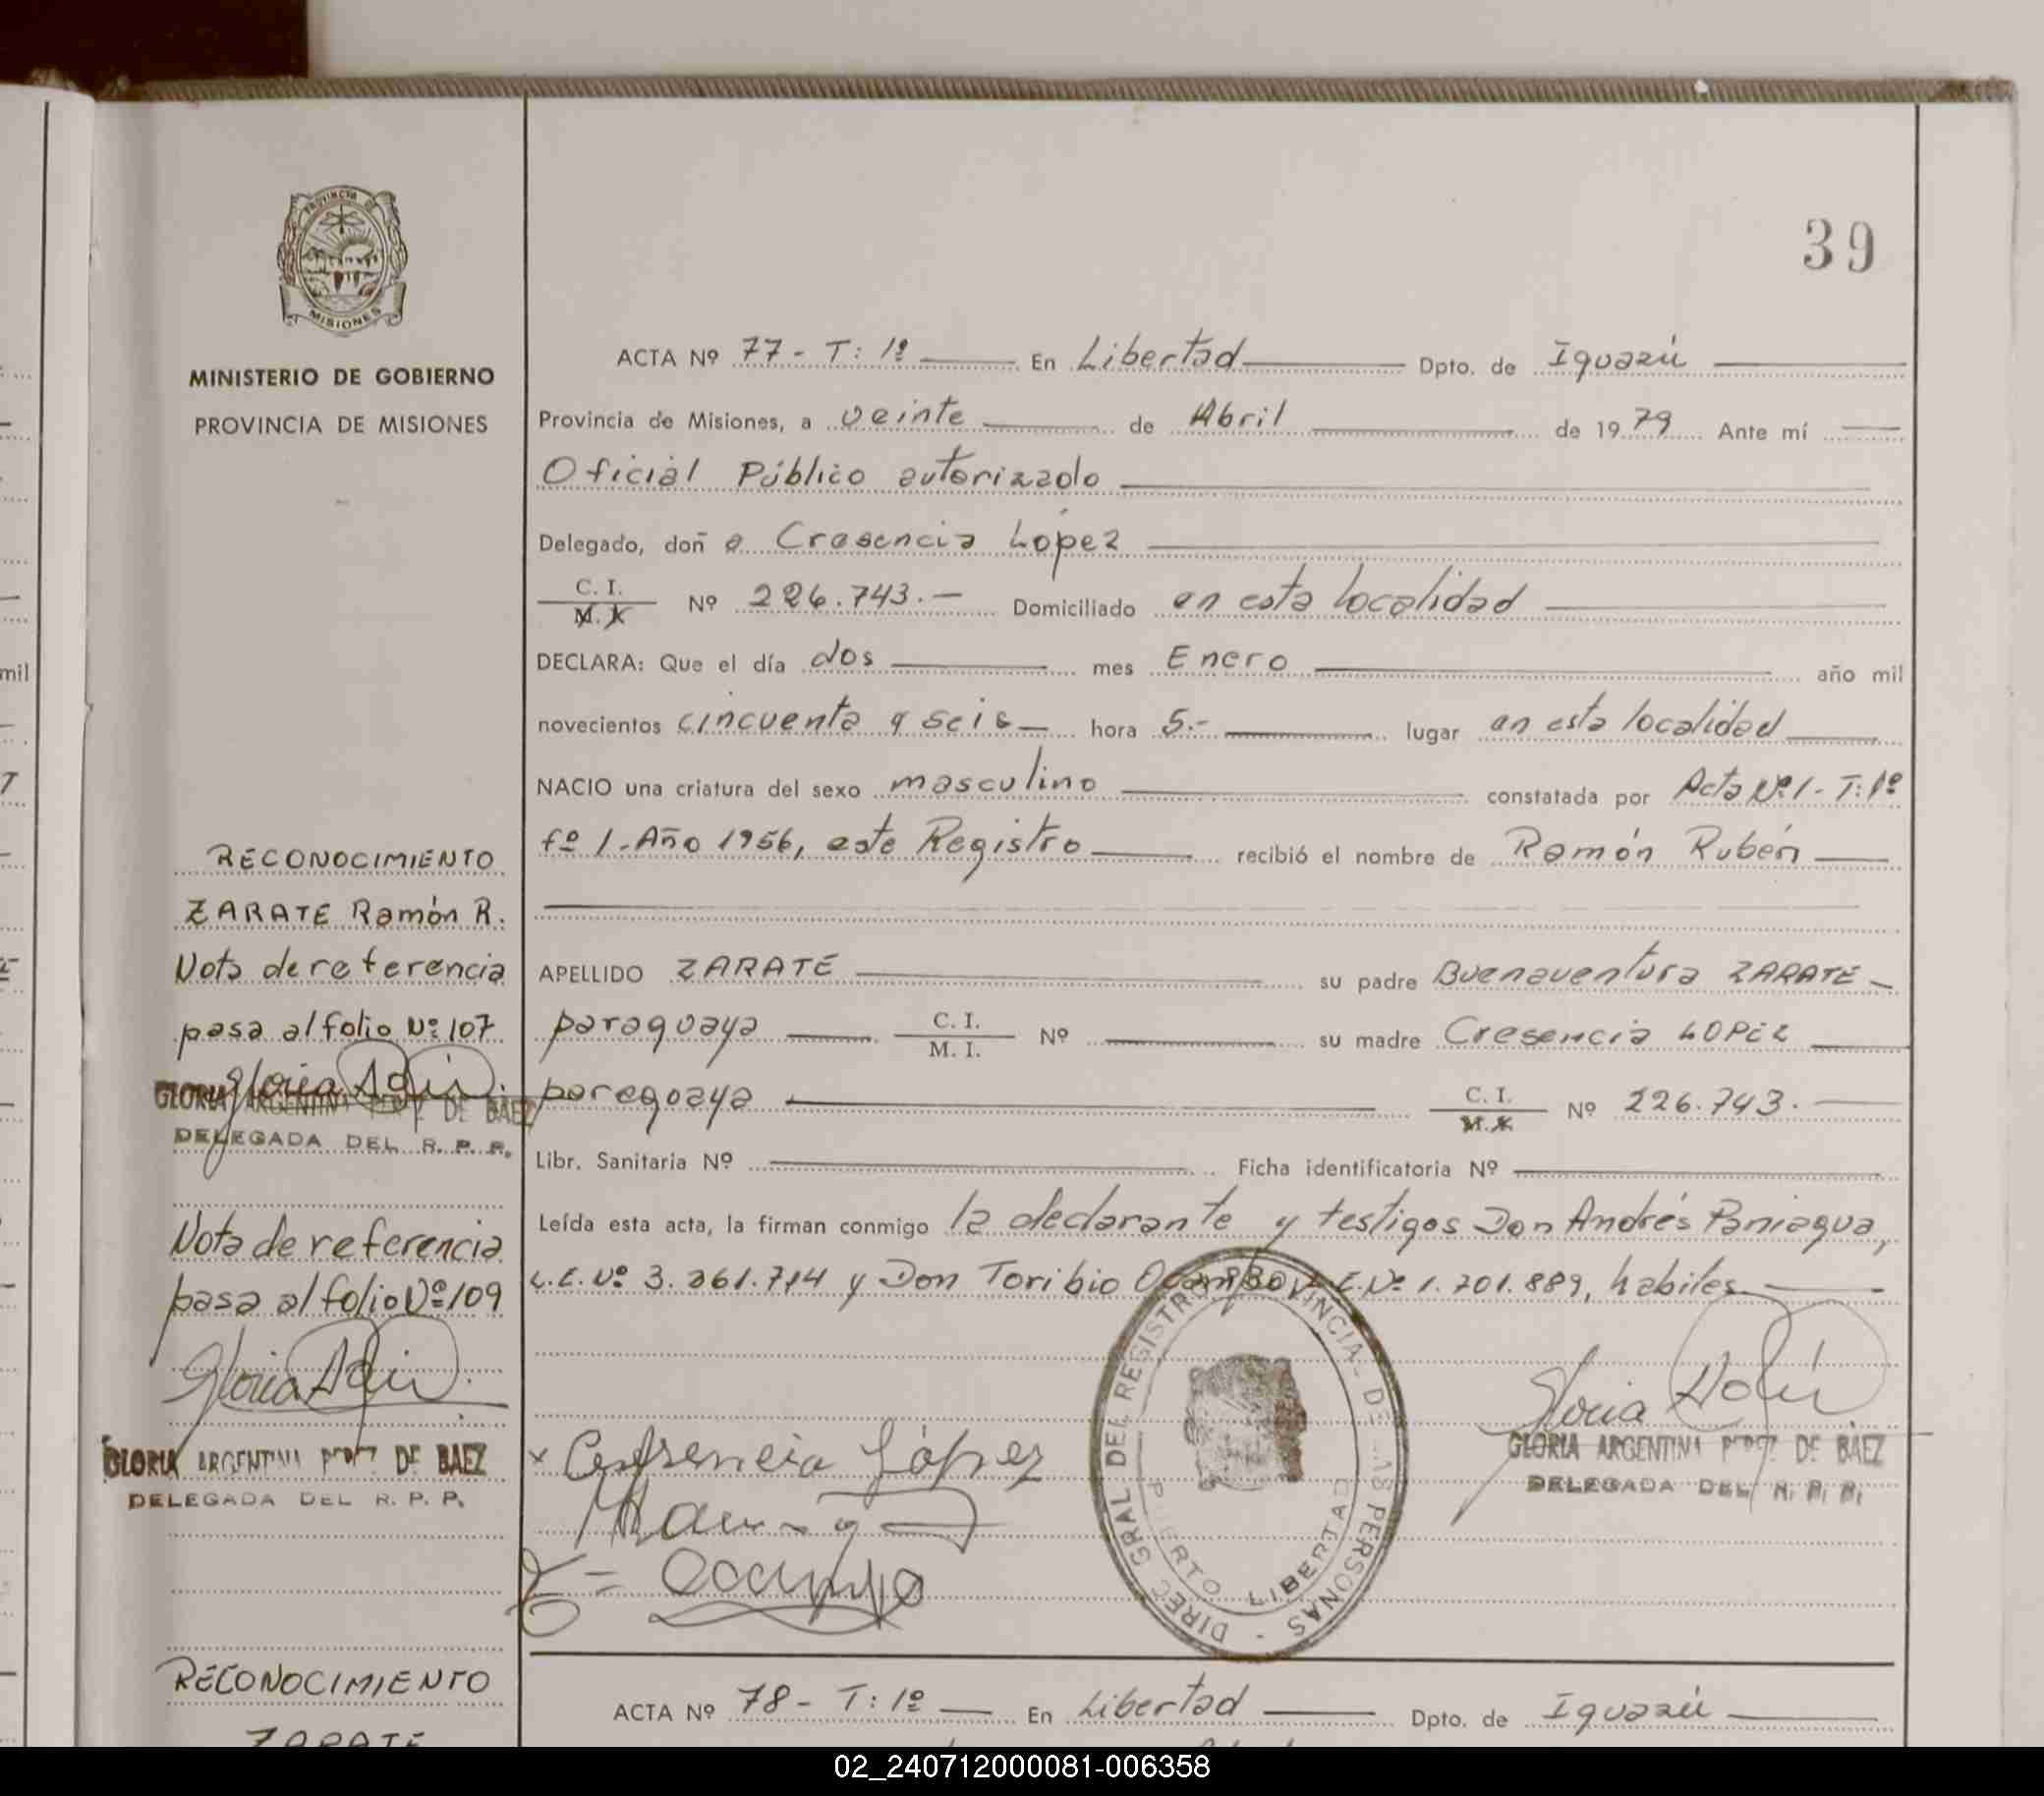 PROVINCIA DE
MISIONES
MINISTERIO DE GOBIERNO
PROVINCIA DE MISIONES
RECONOCIMIENTO
ZARATE Ramón R.
Nota de referencia
pasa al folio Nº 107
GLORIA ARGENTINA PEREZ DE BAEZ
DELEGADA DEL R. P. P.
Nota de referencia
pasa al folio Nº 109
GLORIA ARGENTINA PEREZ DE BAEZ
DELEGADA DEL R. P. P.
RECONOCIMIENTO
ZARATE
mil
39
ACTA Nº 77 - T: 1º En Libertad Dpto. de Iguazú
Provincia de Misiones, a veinte de Abril de 1979 Ante mí
Oficial Público autorizado
Delegado, doña Cresencia López
C. I. M. I. Nº 226.743.- Domiciliado en esta localidad
DECLARA: Que el día dos mes Enero año mil
novecientos cincuenta y seis hora 5.- lugar en esta localidad
NACIO una criatura del sexo masculino constatada por Acta Nº 1 - T: 1º
fº 1 - Año 1956, este Registro recibió el nombre de Ramón Rubén
APELLIDO ZARATE su padre Buenaventura ZARATE
paraguaya C. I. M. I. Nº su madre Cresencia LOPEZ
paraguaya C. I. M. I. Nº 226.743.
Libr. Sanitaria Nº Ficha identificatoria Nº
Leída esta acta, la firman conmigo la declarante y testigos Don Andrés Paniagua,
L.E. Nº 3.261.714 y Don Toribio Ocampo, L.E. Nº 1.701.889, habiles
DIREC. GRAL DEL REGISTRO PROVINCIAL DE LAS PERSONAS -
PUERTO LIBERTAD
López
Ocampo
Gloria
GLORIA ARGENTINA PEREZ DE BAEZ
DELEGADA DEL R. P. P.
ACTA Nº 78 - T: 1º En Libertad Dpto. de Iguazú
02_240712000081-006358